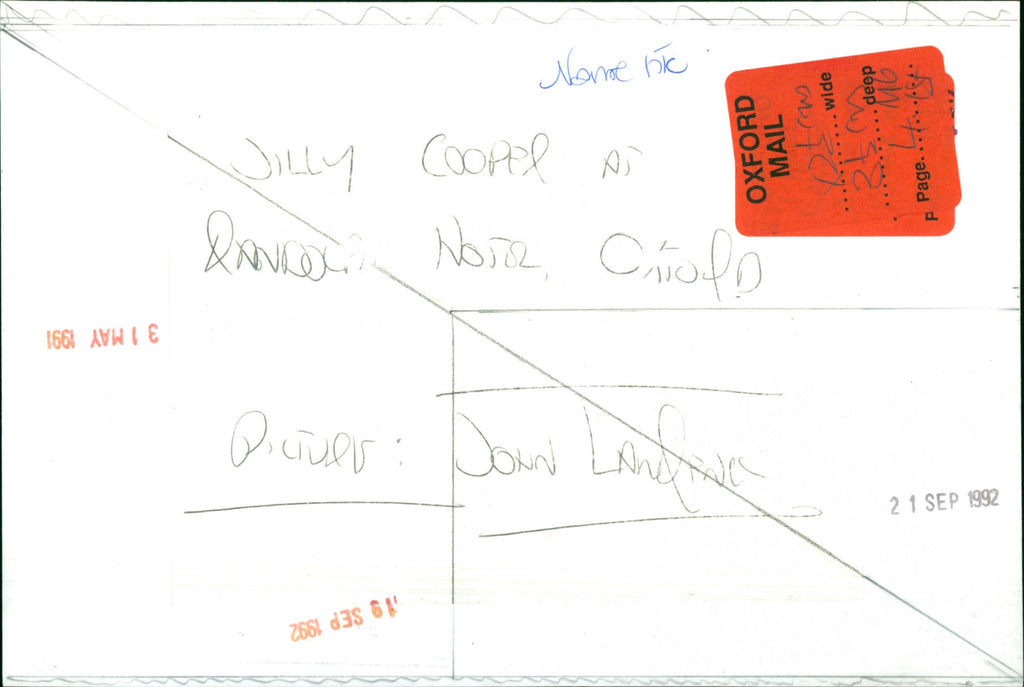 Name
OXFORD
MAIL
wide
deep
Page 4
p
JILLY COOPER AT
RANDOLPH HOTEL, OXFORD
31 MAY 1991
PICTURE: JOHN
21 SEP 1992
19 SEP 1992